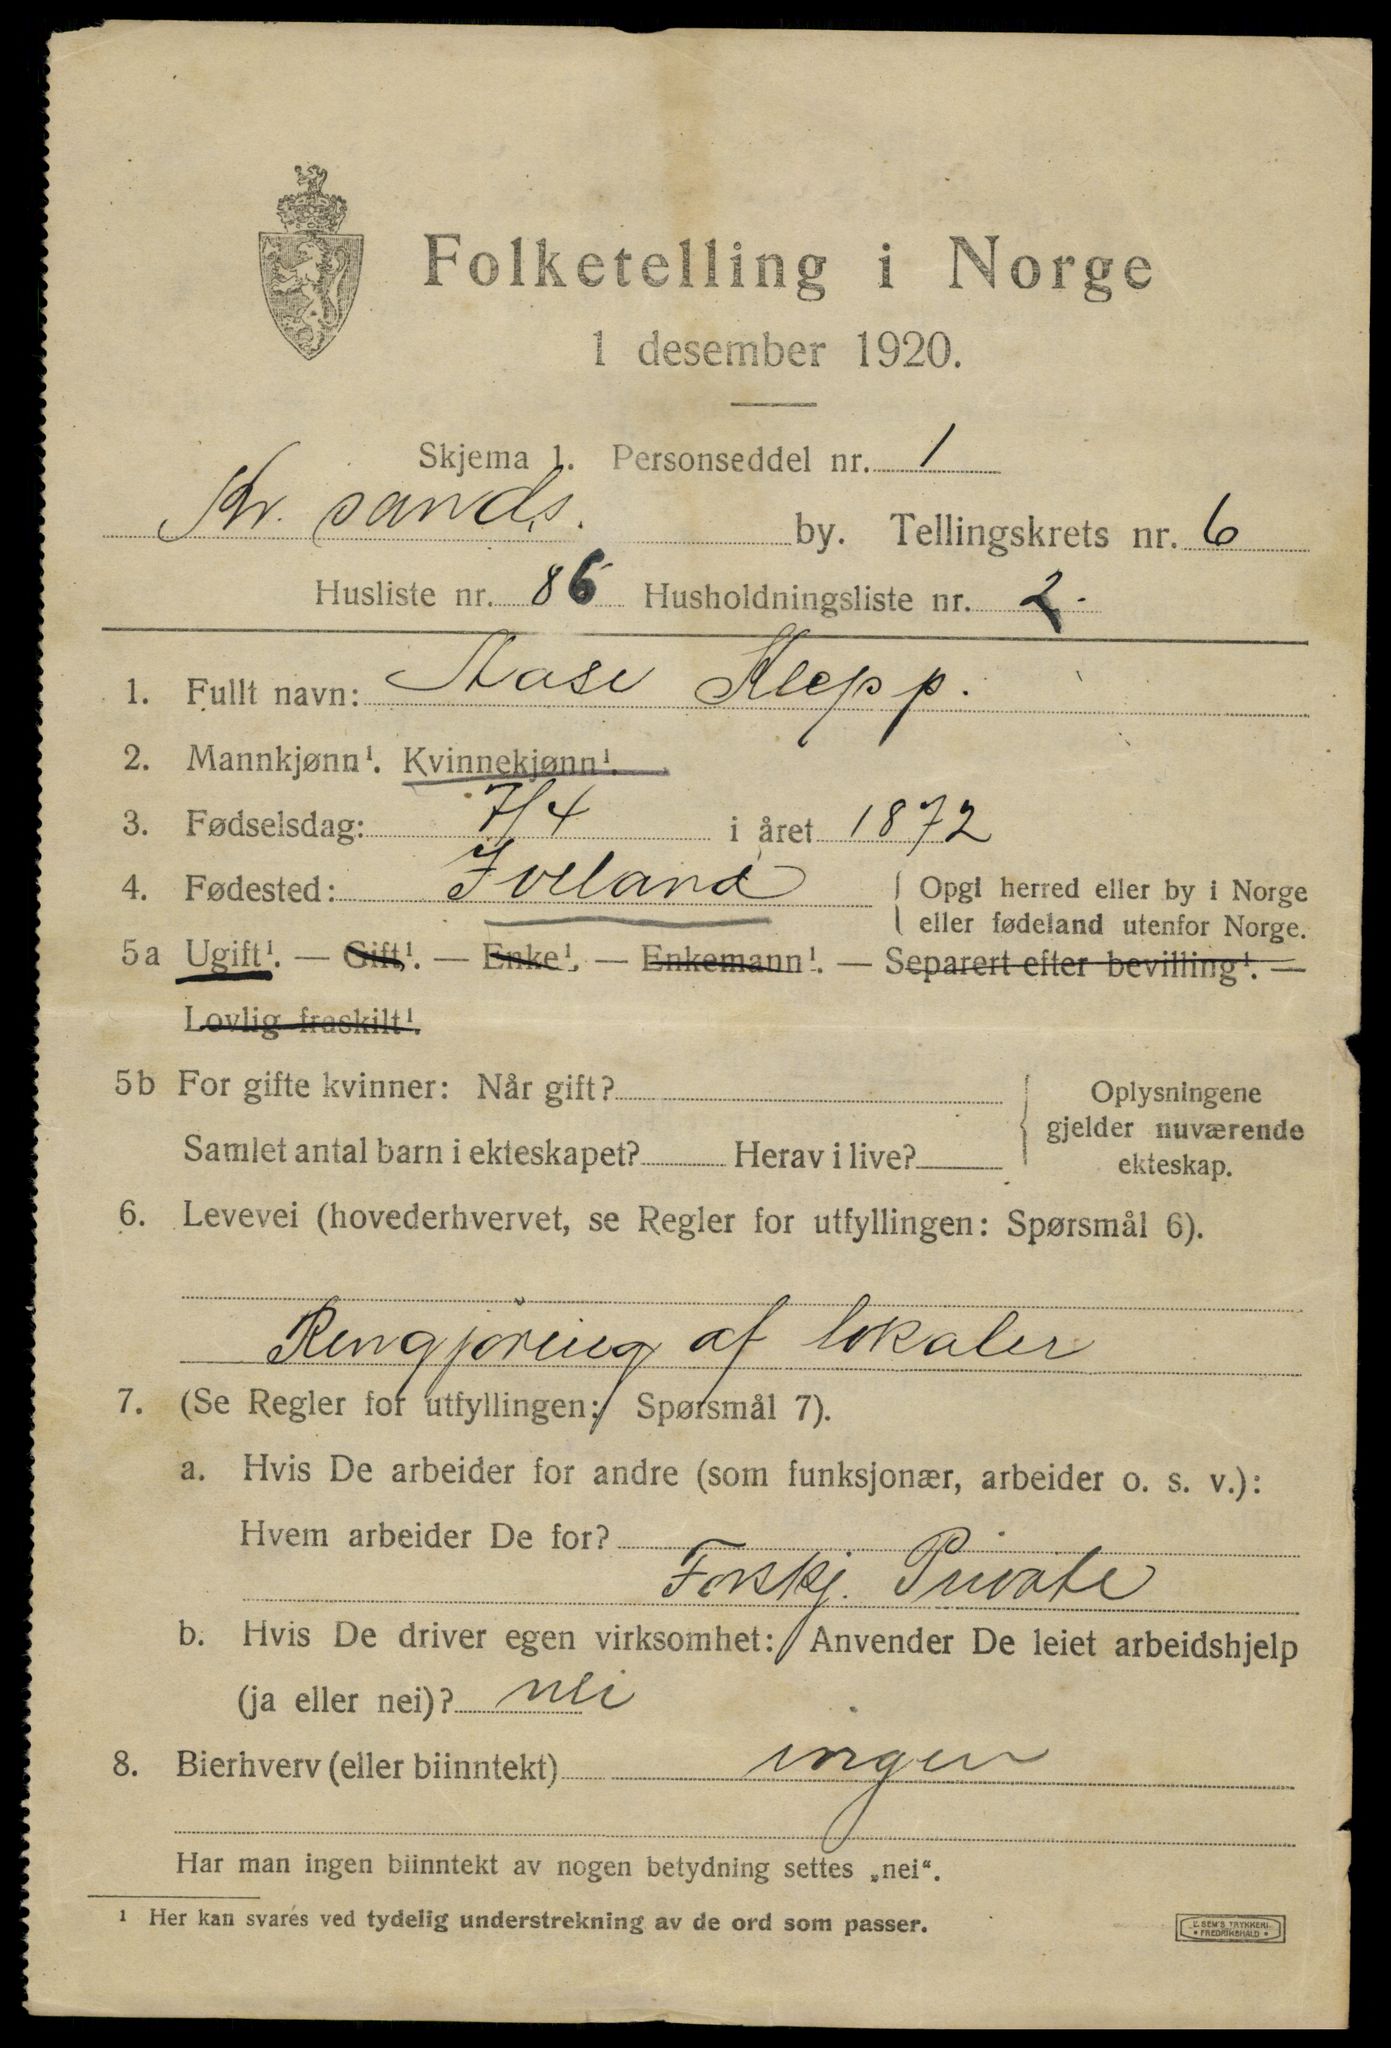 Folketelling i Norge
1 desember 1920.
Skjema 1. Personseddel nr. 1
Kr. sands. by. Tellingskrets nr. 6
Husliste nr. 86 Husholdningsliste nr. 2.
1. Fullt navn: Aase Klepp.
2. Mannkjønn¹. Kvinnekjønn¹.
3. Fødselsdag: 7/4 i året 1872
4. Fødested: Iveland { Opgi herred eller by i Norge
eller fødeland utenfor Norge.
5a Ugift¹. — Gift¹. — Enke¹. — Enkemann¹. — Separert efter bevilling¹. —
Lovlig fraskilt¹.
5b For gifte kvinner: Når gift? { Oplysningene
gjelder nuværende
Samlet antal barn i ekteskapet? Herav i live? ekteskap.
6. Levevei (hovederhvervet, se Regler for utfyllingen: Spørsmål 6).
Rengjøring af lokaler
7. (Se Regler for utfyllingen: Spørsmål 7).
a. Hvis De arbeider for andre (som funksjonær, arbeider o. s. v.):
Hvem arbeider De for?
Forskj. Private
b. Hvis De driver egen virksomhet: Anvender De leiet arbeidshjelp
(ja eller nei)? nei
8. Bierhverv (eller biinntekt) ingen
Har man ingen biinntekt av nogen betydning settes „nei“.
¹ Her kan svares ved tydelig understrekning av de ord som passer.
E. SEM'S TRYKKERI
• FREDRIKSHALD •